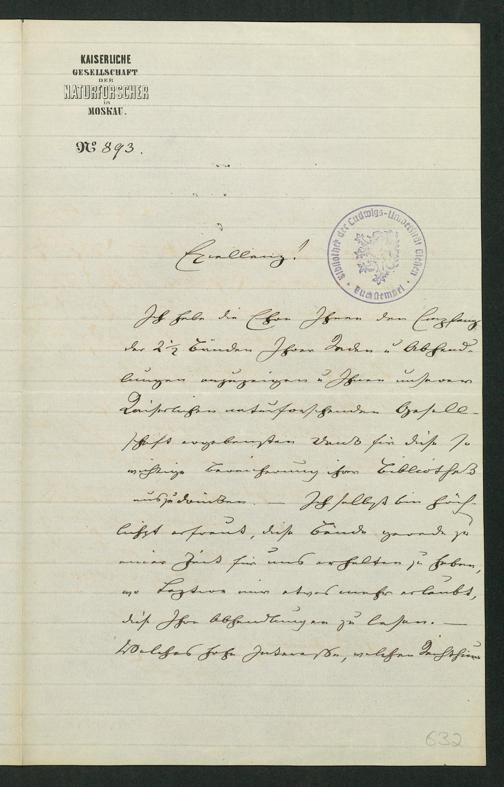 KAISERLICHE
GESELLSCHAFT
DER
NATURFORSCHER
in
MOSKAU.
No 893.
Excellenz!
Bibliothek der Ludwigs-Universität Giessen
Buchstempel
Ich habe die Ehre Ihnen den Empfang
der 2 1/2 Bänden Ihrer Reden u Abhand-
lungen anzuzeigen u Ihnen unserer
Kaiserlichen naturforschenden Gesell-
schaft ergebensten Dank für diese so
wichtige Bereicherung ihrer Bibliothek
auszudrücken. — Ich selbst bin höch-
lichst erfreut, diese Bände gerade zu
einer Zeit für uns erhalten zu haben,
wo Letztere mir etwas mehr erlaubt,
diese Ihre Abhandlungen zu lesen. —
Welches hohe Interesse, welchen Reichthum
632